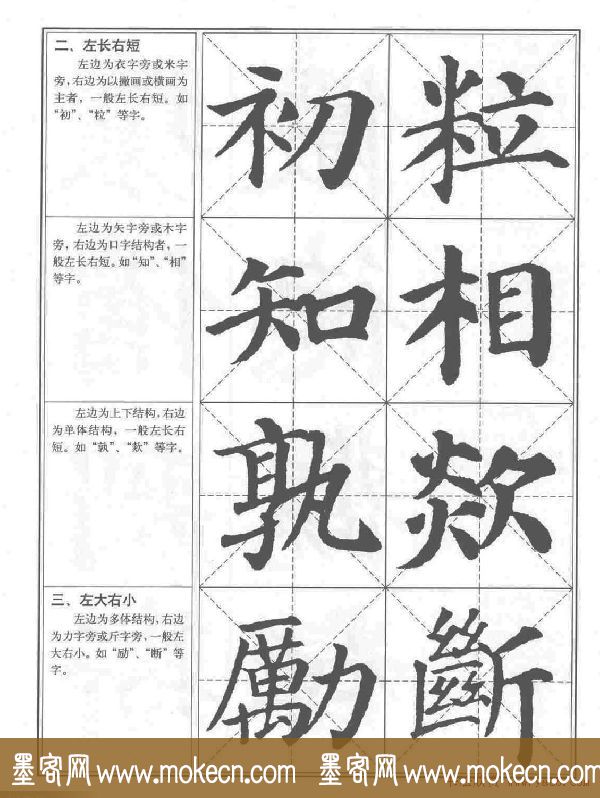 二、左长右短
左边为衣字旁或米字
旁，右边为以撇画或横画为
主者，一般左长右短。如
“初”、“粒”等字。
初 粒
左边为矢字旁或木字
旁，右边为口字结构者，一
般左长右短。如“知”、“相”
等字。
知 相
左边为上下结构，右边
为单体结构，一般左长右
短。如“孰”、“欻”等字。
孰 欻
三、左大右小
左边为多体结构，右边
为力字旁或斤字旁，一般左
大右小。如“励”、“断”等
字。
勵 斷
墨客网 www.mokecn.com 墨客网 www.mokecn.com